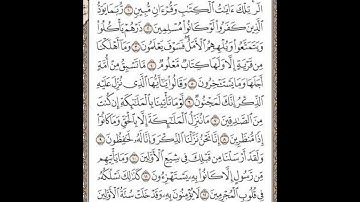 الٓرۚ تِلۡكَ ءَايَٰتُ ٱلۡكِتَٰبِ وَقُرۡءَانٖ مُّبِينٖ ١ رُّبَمَا يَوَدُّ
ٱلَّذِينَ كَفَرُواْ لَوۡ كَانُواْ مُسۡلِمِينَ ٢ ذَرۡهُمۡ يَأۡكُلُواْ
وَيَتَمَتَّعُواْ وَيُلۡهِهِمُ ٱلۡأَمَلُۖ فَسَوۡفَ يَعۡلَمُونَ ٣ وَمَآ أَهۡلَكۡنَا
مِن قَرۡيَةٍ إِلَّا وَلَهَا كِتَابٞ مَّعۡلُومٞ ٤ مَّا تَسۡبِقُ مِنۡ أُمَّةٍ
أَجَلَهَا وَمَا يَسۡتَـٔۡخِرُونَ ٥ وَقَالُواْ يَٰٓأَيُّهَا ٱلَّذِي نُزِّلَ عَلَيۡهِ
ٱلذِّكۡرُ إِنَّكَ لَمَجۡنُونٞ ٦ لَّوۡمَا تَأۡتِينَا بِٱلۡمَلَٰٓئِكَةِ إِن كُنتَ
مِنَ ٱلصَّٰدِقِينَ ٧ مَا نُنَزِّلُ ٱلۡمَلَٰٓئِكَةَ إِلَّا بِٱلۡحَقِّ وَمَا كَانُوٓاْ
إِذٗا مُّنظَرِينَ ٨ إِنَّا نَحۡنُ نَزَّلۡنَا ٱلذِّكۡرَ وَإِنَّا لَهُۥ لَحَٰفِظُونَ ٩
وَلَقَدۡ أَرۡسَلۡنَا مِن قَبۡلِكَ فِي شِيَعِ ٱلۡأَوَّلِينَ ١٠ وَمَا يَأۡتِيهِم
مِّن رَّسُولٍ إِلَّا كَانُواْ بِهِۦ يَسۡتَهۡزِءُونَ ١١ كَذَٰلِكَ نَسۡلُكُهُۥ
فِي قُلُوبِ ٱلۡمُجۡرِمِينَ ١٢ لَا يُؤۡمِنُونَ بِهِۦ وَقَدۡ خَلَتۡ سُنَّةُ ٱلۡأَوَّلِينَ